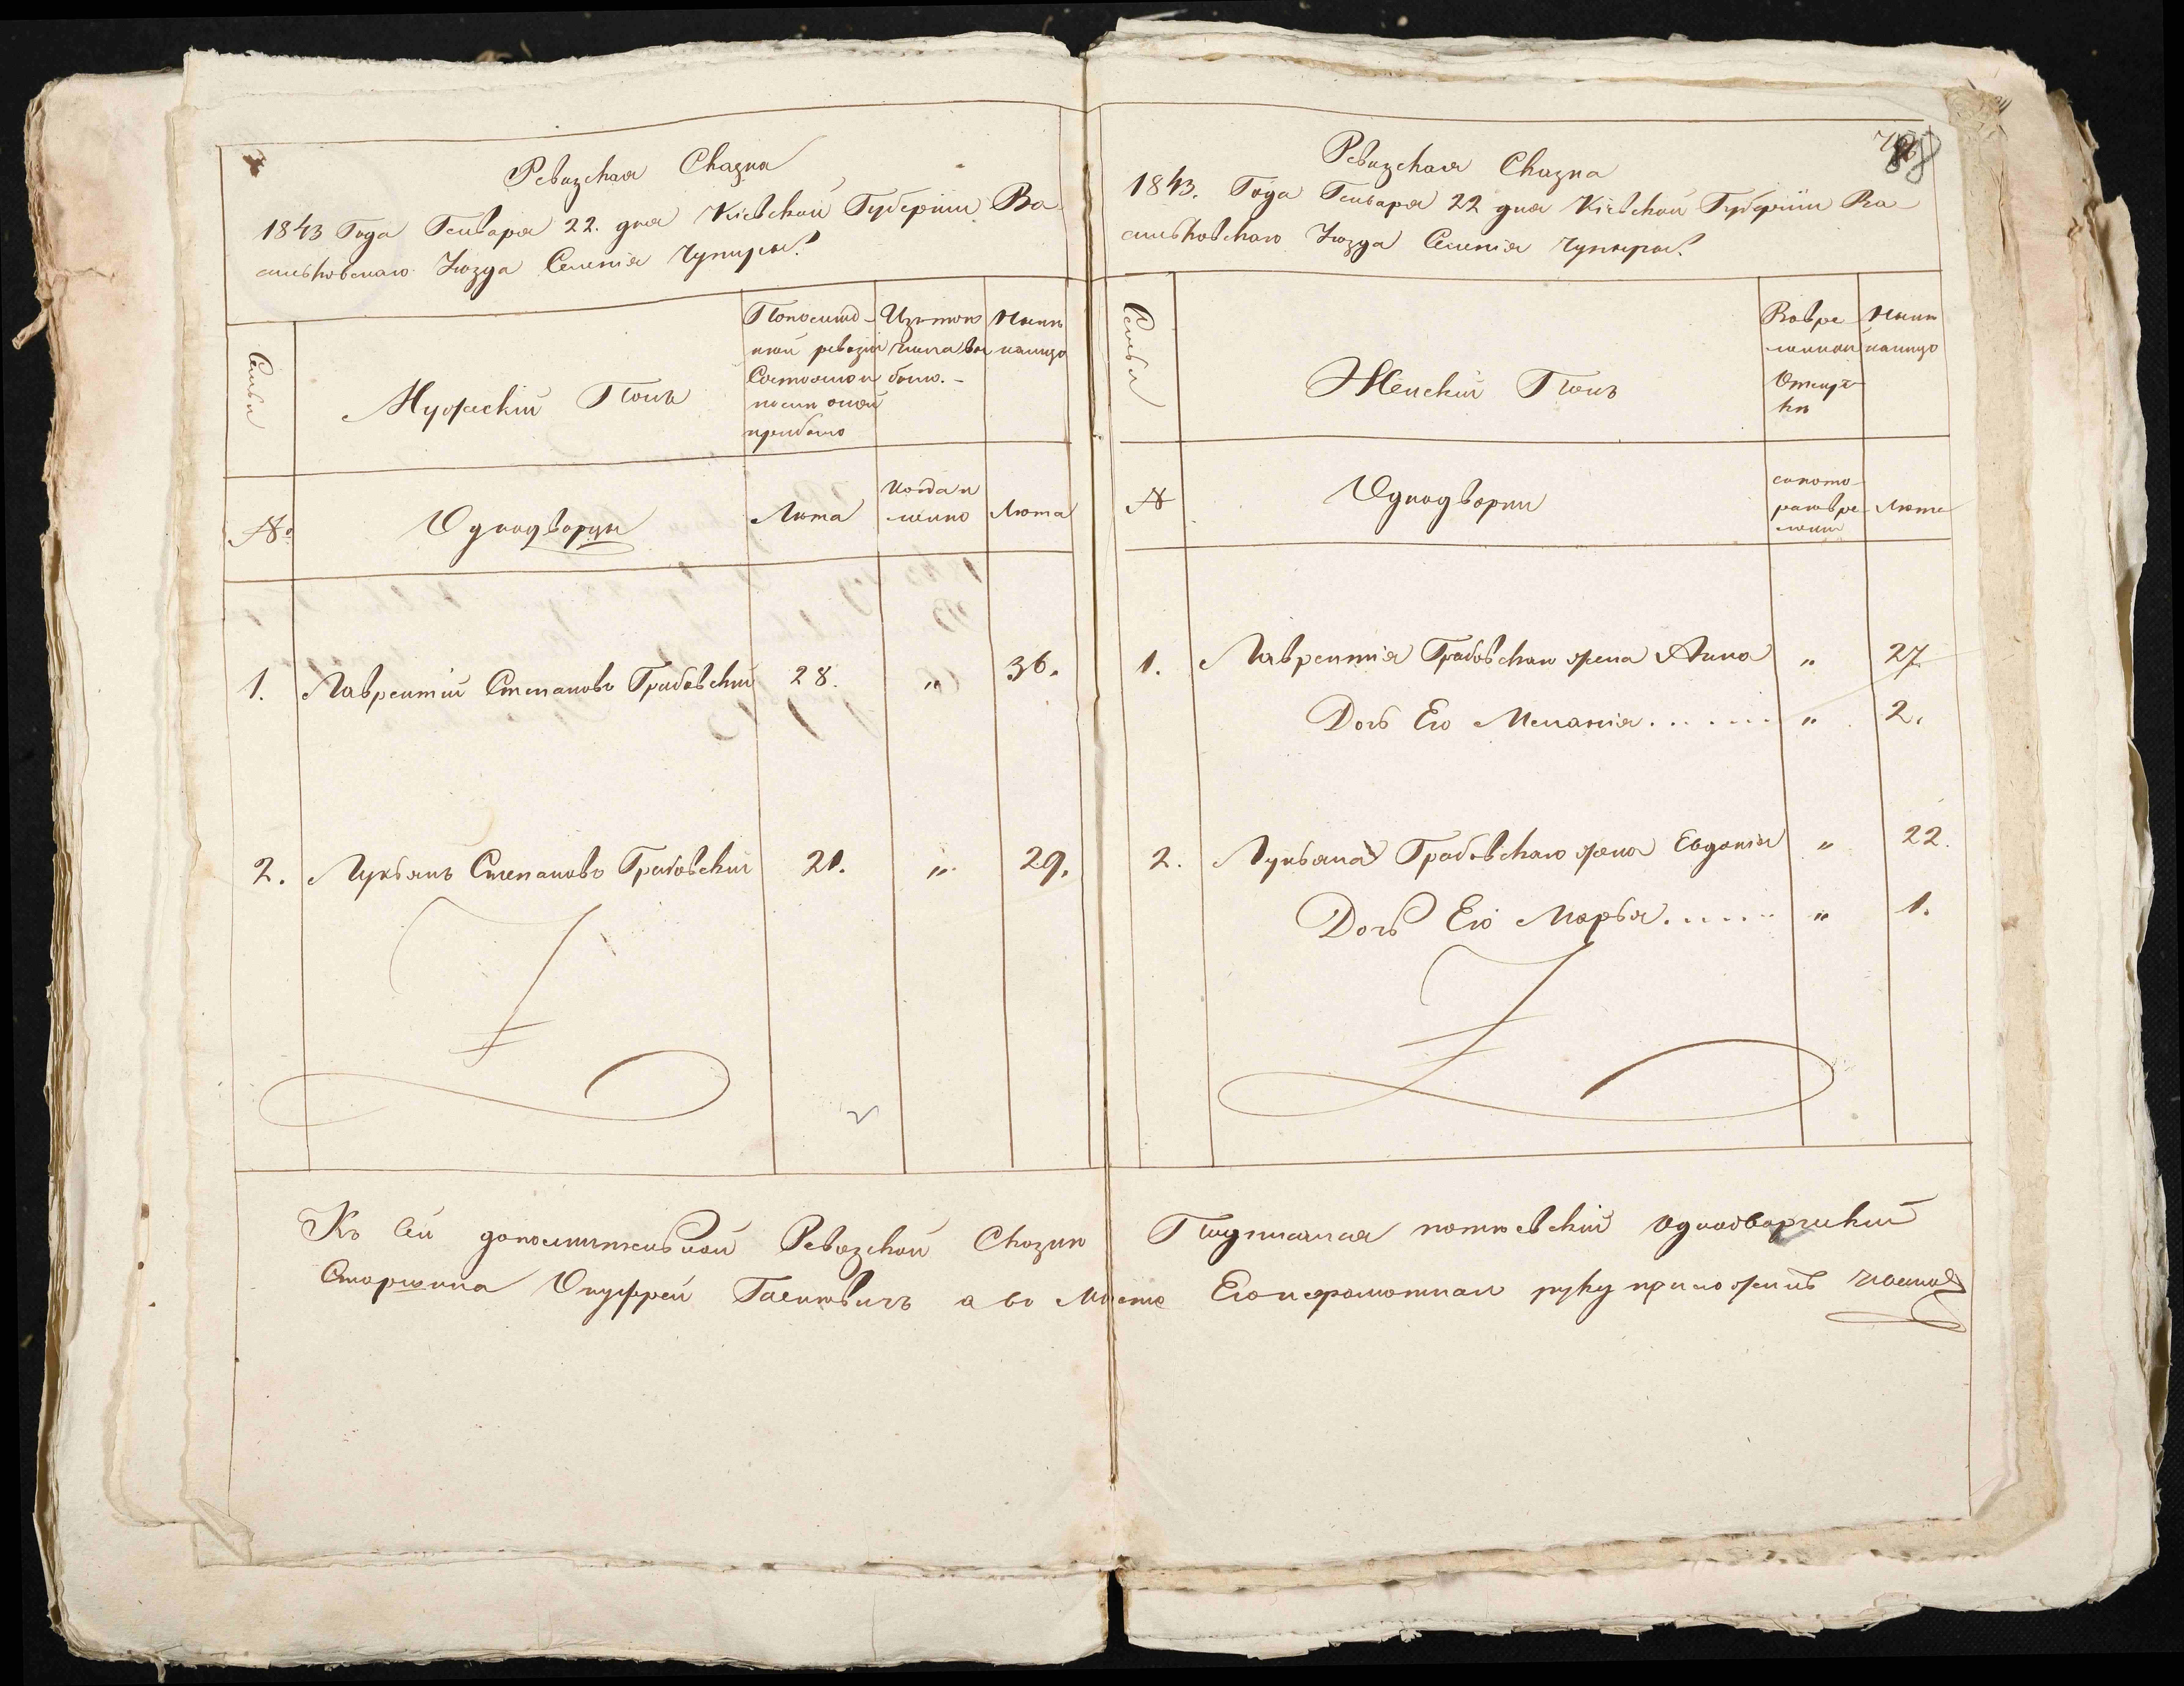 Ревизская Сказка
1843 Года Генваря 22. дня Кіевской Губерніи Ва
сильковскаго Уѣзда Селенія Чупиры.
Семьи
Мужескій Полъ
По послѣд-
ней ревизіи
Состояло и
послѣ оной
прибыло
Изъ того
числа вы
было.-
Нынѣ
налицо
№
Однодворцы
Лѣта
Когда и
менно
Лѣта
1. Лаврентій Степановъ Грабовскій 28. " 36.
2. Лукьянъ Степановъ Грабовскій 21. " 29.
Ревизская Сказка
1843. Года Генваря 22 дня Кіевской Губерніи Ва
сильковскаго Уѣзда Селенія Чупиры.
Семьи
Женскій Полъ
Вовре
менной
Отлуч
кѣ
Нынѣ
налицо
№
Однодворки
съ кото
раго вре
мени
Лѣта
1. Лаврентія Грабовскаго жена Анна " 27
Дочь Его Меланія....... " 2.
2. Лукьяна Грабовскаго жена Евдокія " 22.
Дочь Его Марья...... " 1.
Къ сей дополнительной Ревизской Сказкѣ Подписался однодворческий
Старшина Онуфрей а во Мѣсто Его неграмотнаго руку приложилъ